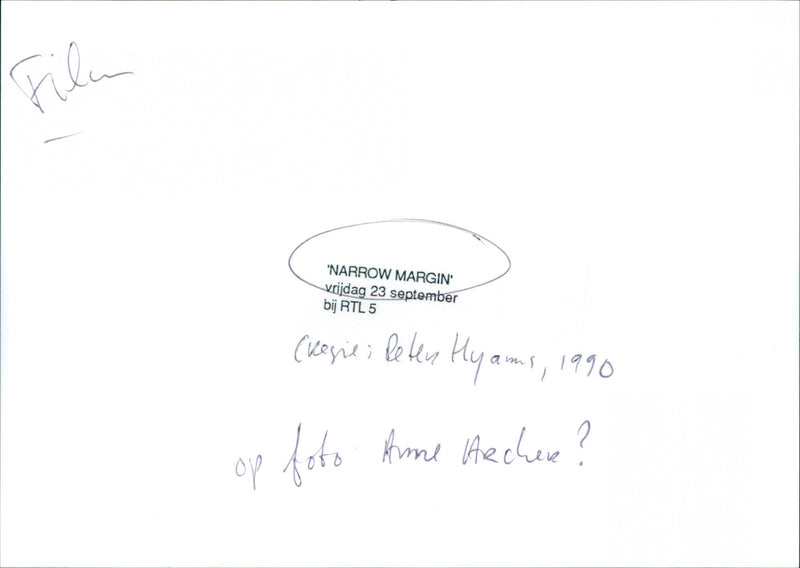 Film
'NARROW MARGIN'
vrijdag 23 september
bij RTL 5
(Regie: Peter Hyams, 1990
op foto Anne Archer?